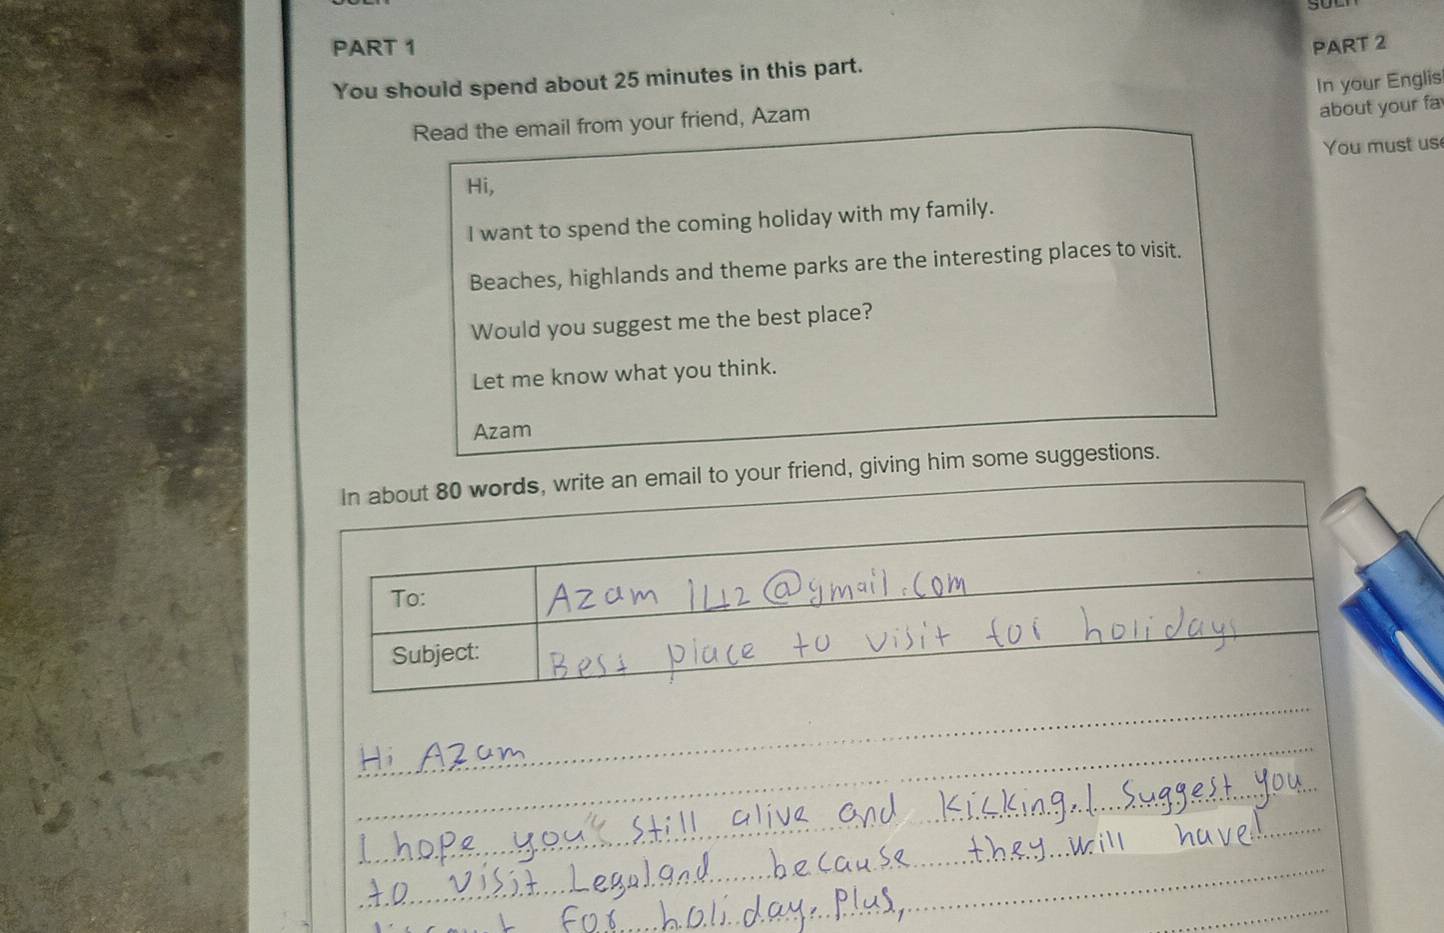 PART 1
PART 2
You should spend about 25 minutes in this part.
In your Englis
about your fa
Read the email from your friend, Azam
You must use
Hi,
I want to spend the coming holiday with my family.
Beaches, highlands and theme parks are the interesting places to visit.
Would you suggest me the best place?
Let me know what you think.
Azam
In about 80 words, write an email to your friend, giving him some suggestions.
To: Azam 142@gmail.com
Subject: Best place to visit for holidays
Hi Azam
I hope you still alive and kicking. I suggest you
to visit Legoland because they will have
for holiday. Plus,